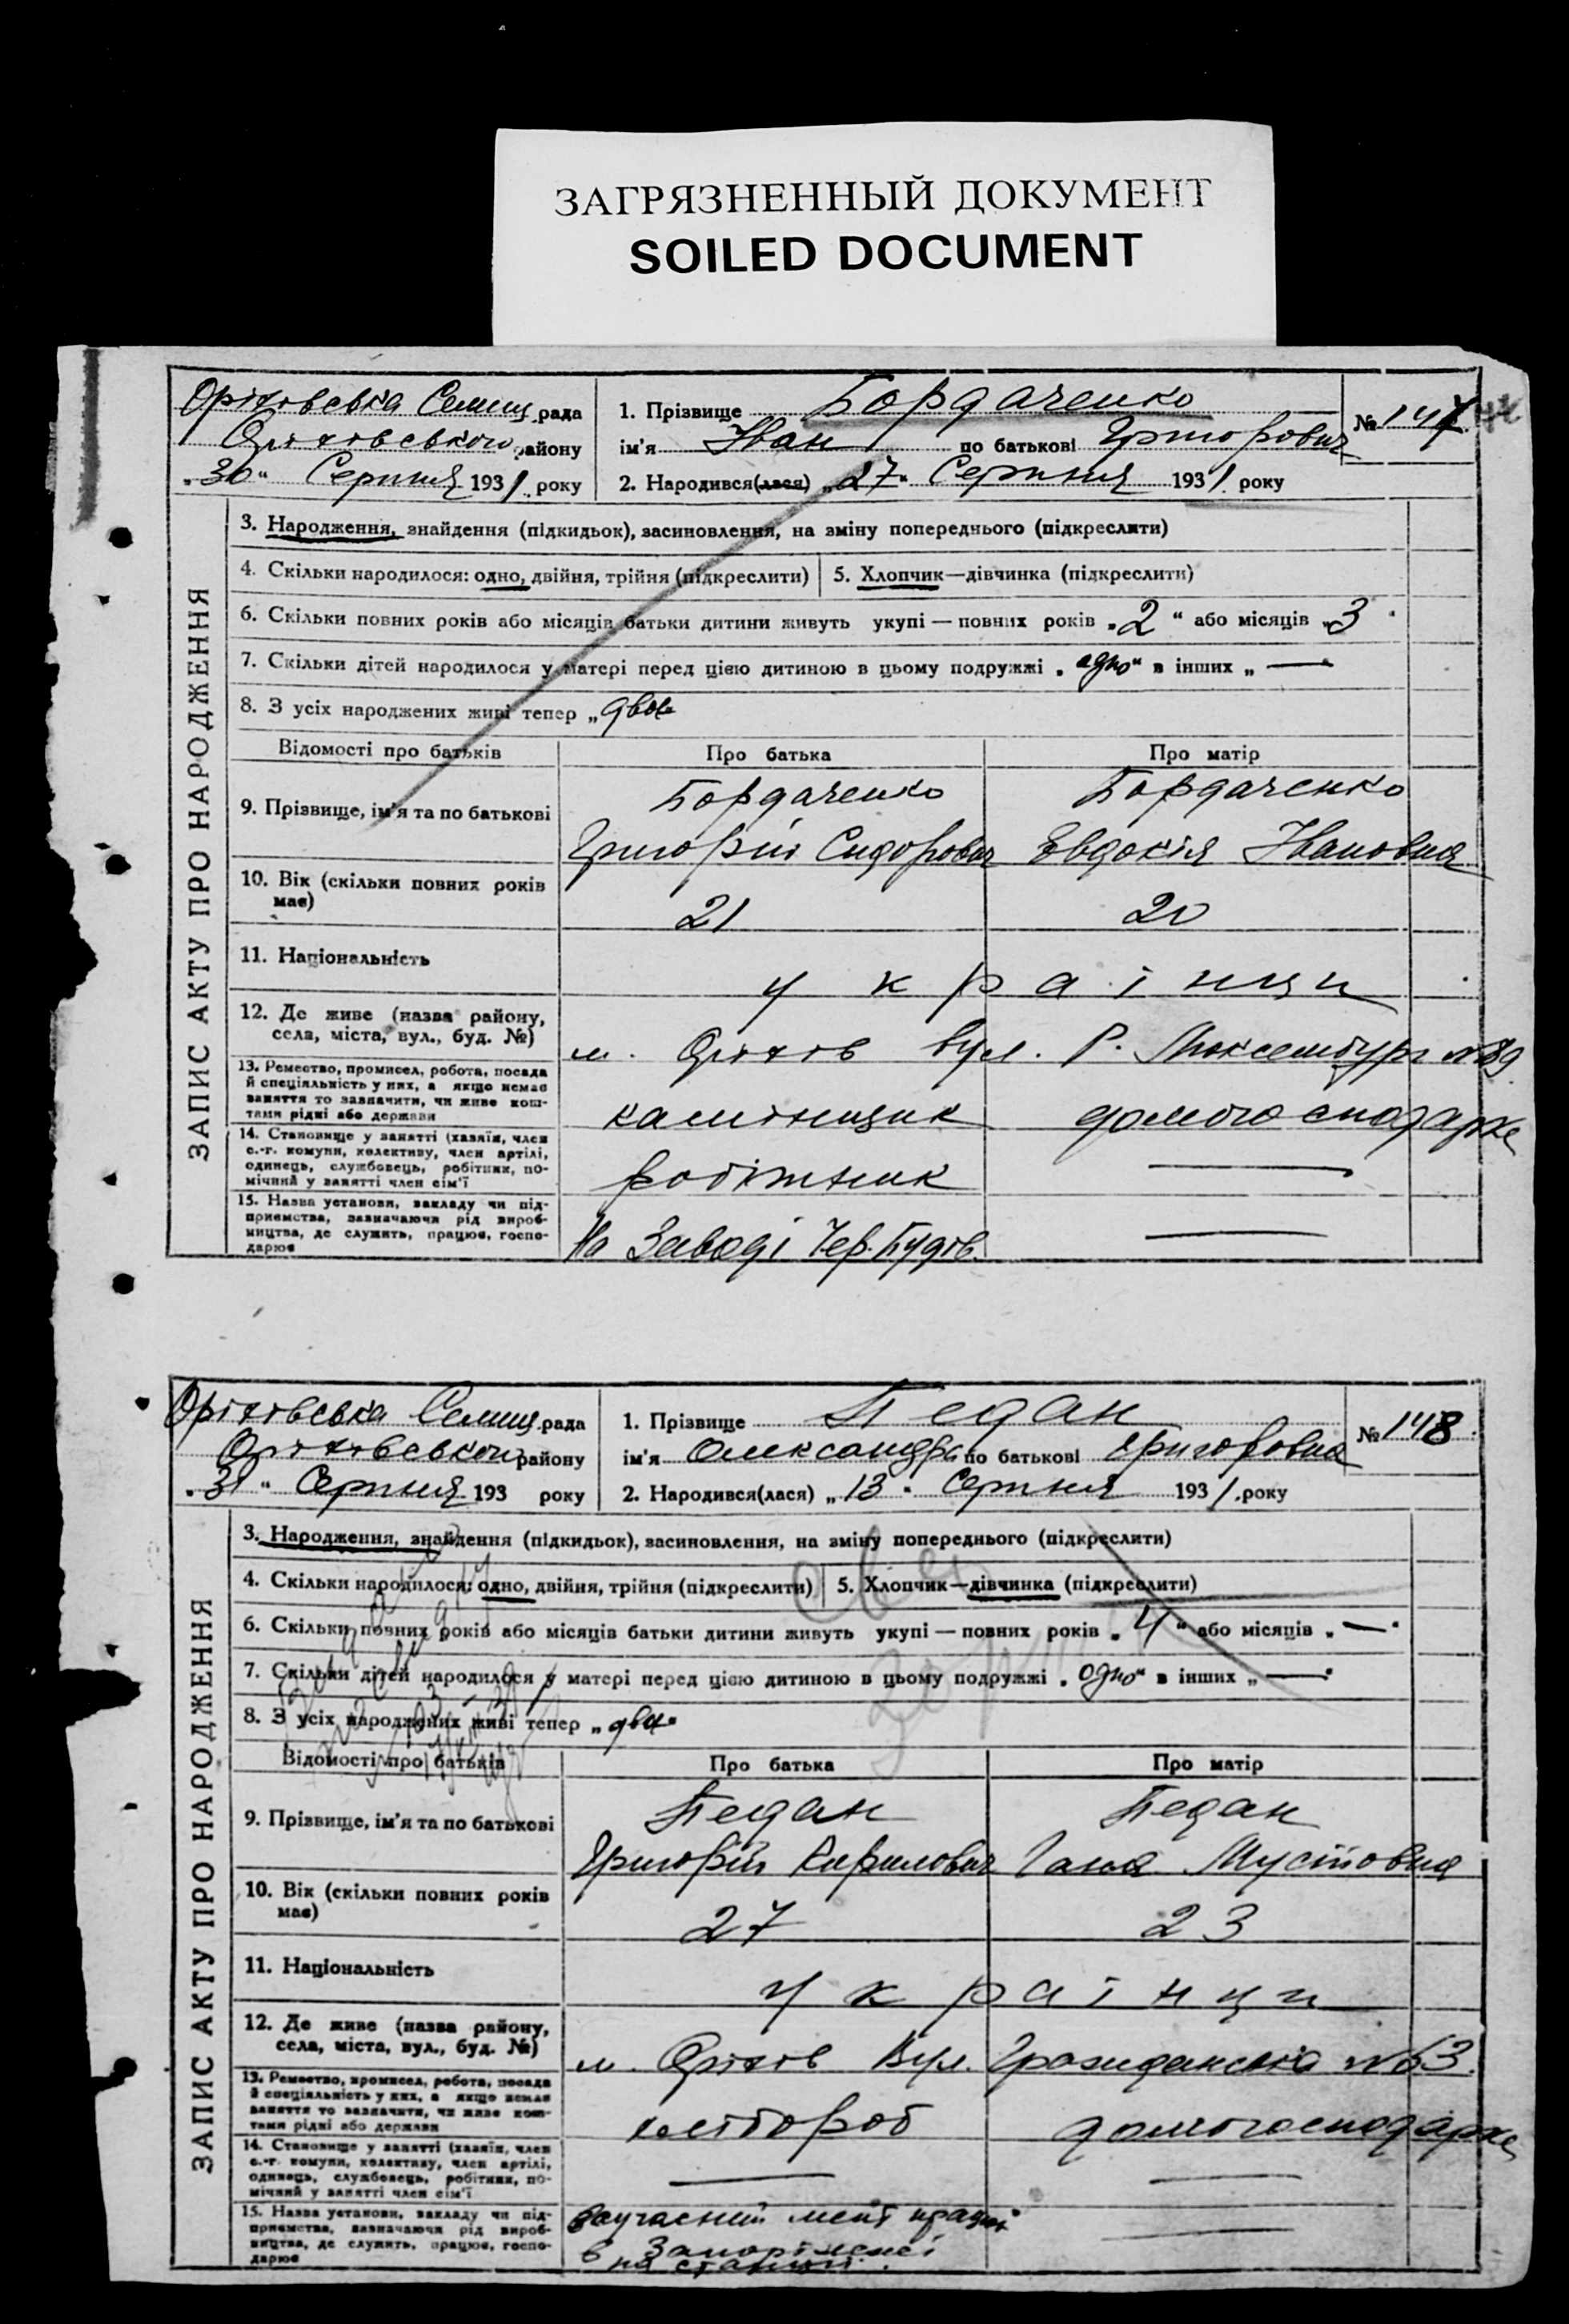 ЗАГРЯЗНЕННЫЙ ДОКУМЕНТ
SOILED DOCUMENT
Оріхівська Селищ. рада
Оріхівського району
„30“ Серпня 1931 року
1. Прізвище Бордаченко
№ 147
ім'я Іван по батькові Григорович
2. Народився(лася) „27“ Серпня 1931 року
ЗАПИС АКТУ ПРО НАРОДЖЕННЯ
3. Народження, знайдення (підкидьок), засиновлення, на зміну попереднього (підкреслити)
4. Скільки народилося: одно, двійня, трійня (підкреслити) 5. Хлопчик—дівчинка (підкреслити)
6. Скільки повних років або місяців батьки дитини живуть укупі — повних років „2“ або місяців „3“
7. Скільки дітей народилося у матері перед цією дитиною в цьому подружжі „одно“ в інших „—“
8. З усіх народжених живі тепер „двое
Відомості про батьків Про батька Про матір
9. Прізвище, ім'я та по батькові
Бордаченко Бордаченко
Григорій Сидорович Евдокія Івановна
10. Вік (скільки повних років має)
21 20
11. Національність
українци
12. Де живе (назва району, села, міста, вул., буд. №)
м. Оріхів вул. Р. Люксембург №89
13. Ремество, промисел, робота, посада й спеціяльність у них, а якщо немає заняття то зазначити, чи живе коштами рідні або держави
камінщик домогосподарка
14. Становище у занятті (хазяїн, член с.-г. комуни, колективу, член артілі, одинець, службовець, робітник, помічний у занятті член сім'ї
робітник —
15. Назва установи, закладу чи підприємства, зазначаючи рід виробництва, де служить, працює, господарює
На Заводі Чер. Будів. —
Оріхівська Селищ. рада
Оріхівської району
„31“ Серпня 193 року
1. Прізвище Педан
№ 148
ім'я Олександра по батькові Григоровна
2. Народився(лася) „13“ Серпня 1931 року
ЗАПИС АКТУ ПРО НАРОДЖЕННЯ
3. Народження, знайдення (підкидьок), засиновлення, на зміну попереднього (підкреслити)
4. Скільки народилося: одно, двійня, трійня (підкреслити) 5. Хлопчик—дівчинка (підкреслити)
6. Скільки повних років або місяців батьки дитини живуть укупі — повних років „4“ або місяців „—“
7. Скільки дітей народилося у матері перед цією дитиною в цьому подружжі „одно“ в інших „—“
8. З усіх народжених живі тепер „двое“
Відомості про батьків Про батька Про матір
9. Прізвище, ім'я та по батькові
Педан Педан
Григорій Кирилович Гана Мусіївна
10. Вік (скільки повних років має)
27 23
11. Національність
українци
12. Де живе (назва району, села, міста, вул., буд. №)
м. Оріхів Вул. Гражданська №63
13. Ремество, промисел, робота, посада й спеціяльність у них, а якщо немає заняття то зазначити, чи живе коштами рідні або держави
хлібороб домогосподарка
14. Становище у занятті (хазяїн, член с.-г. комуни, колективу, член артілі, одинець, службовець, робітник, помічний у занятті член сім'ї
— —
15. Назва установи, закладу чи підприємства, зазначаючи рід виробництва, де служить, працює, господарює
в Запоріжжі
на станції.